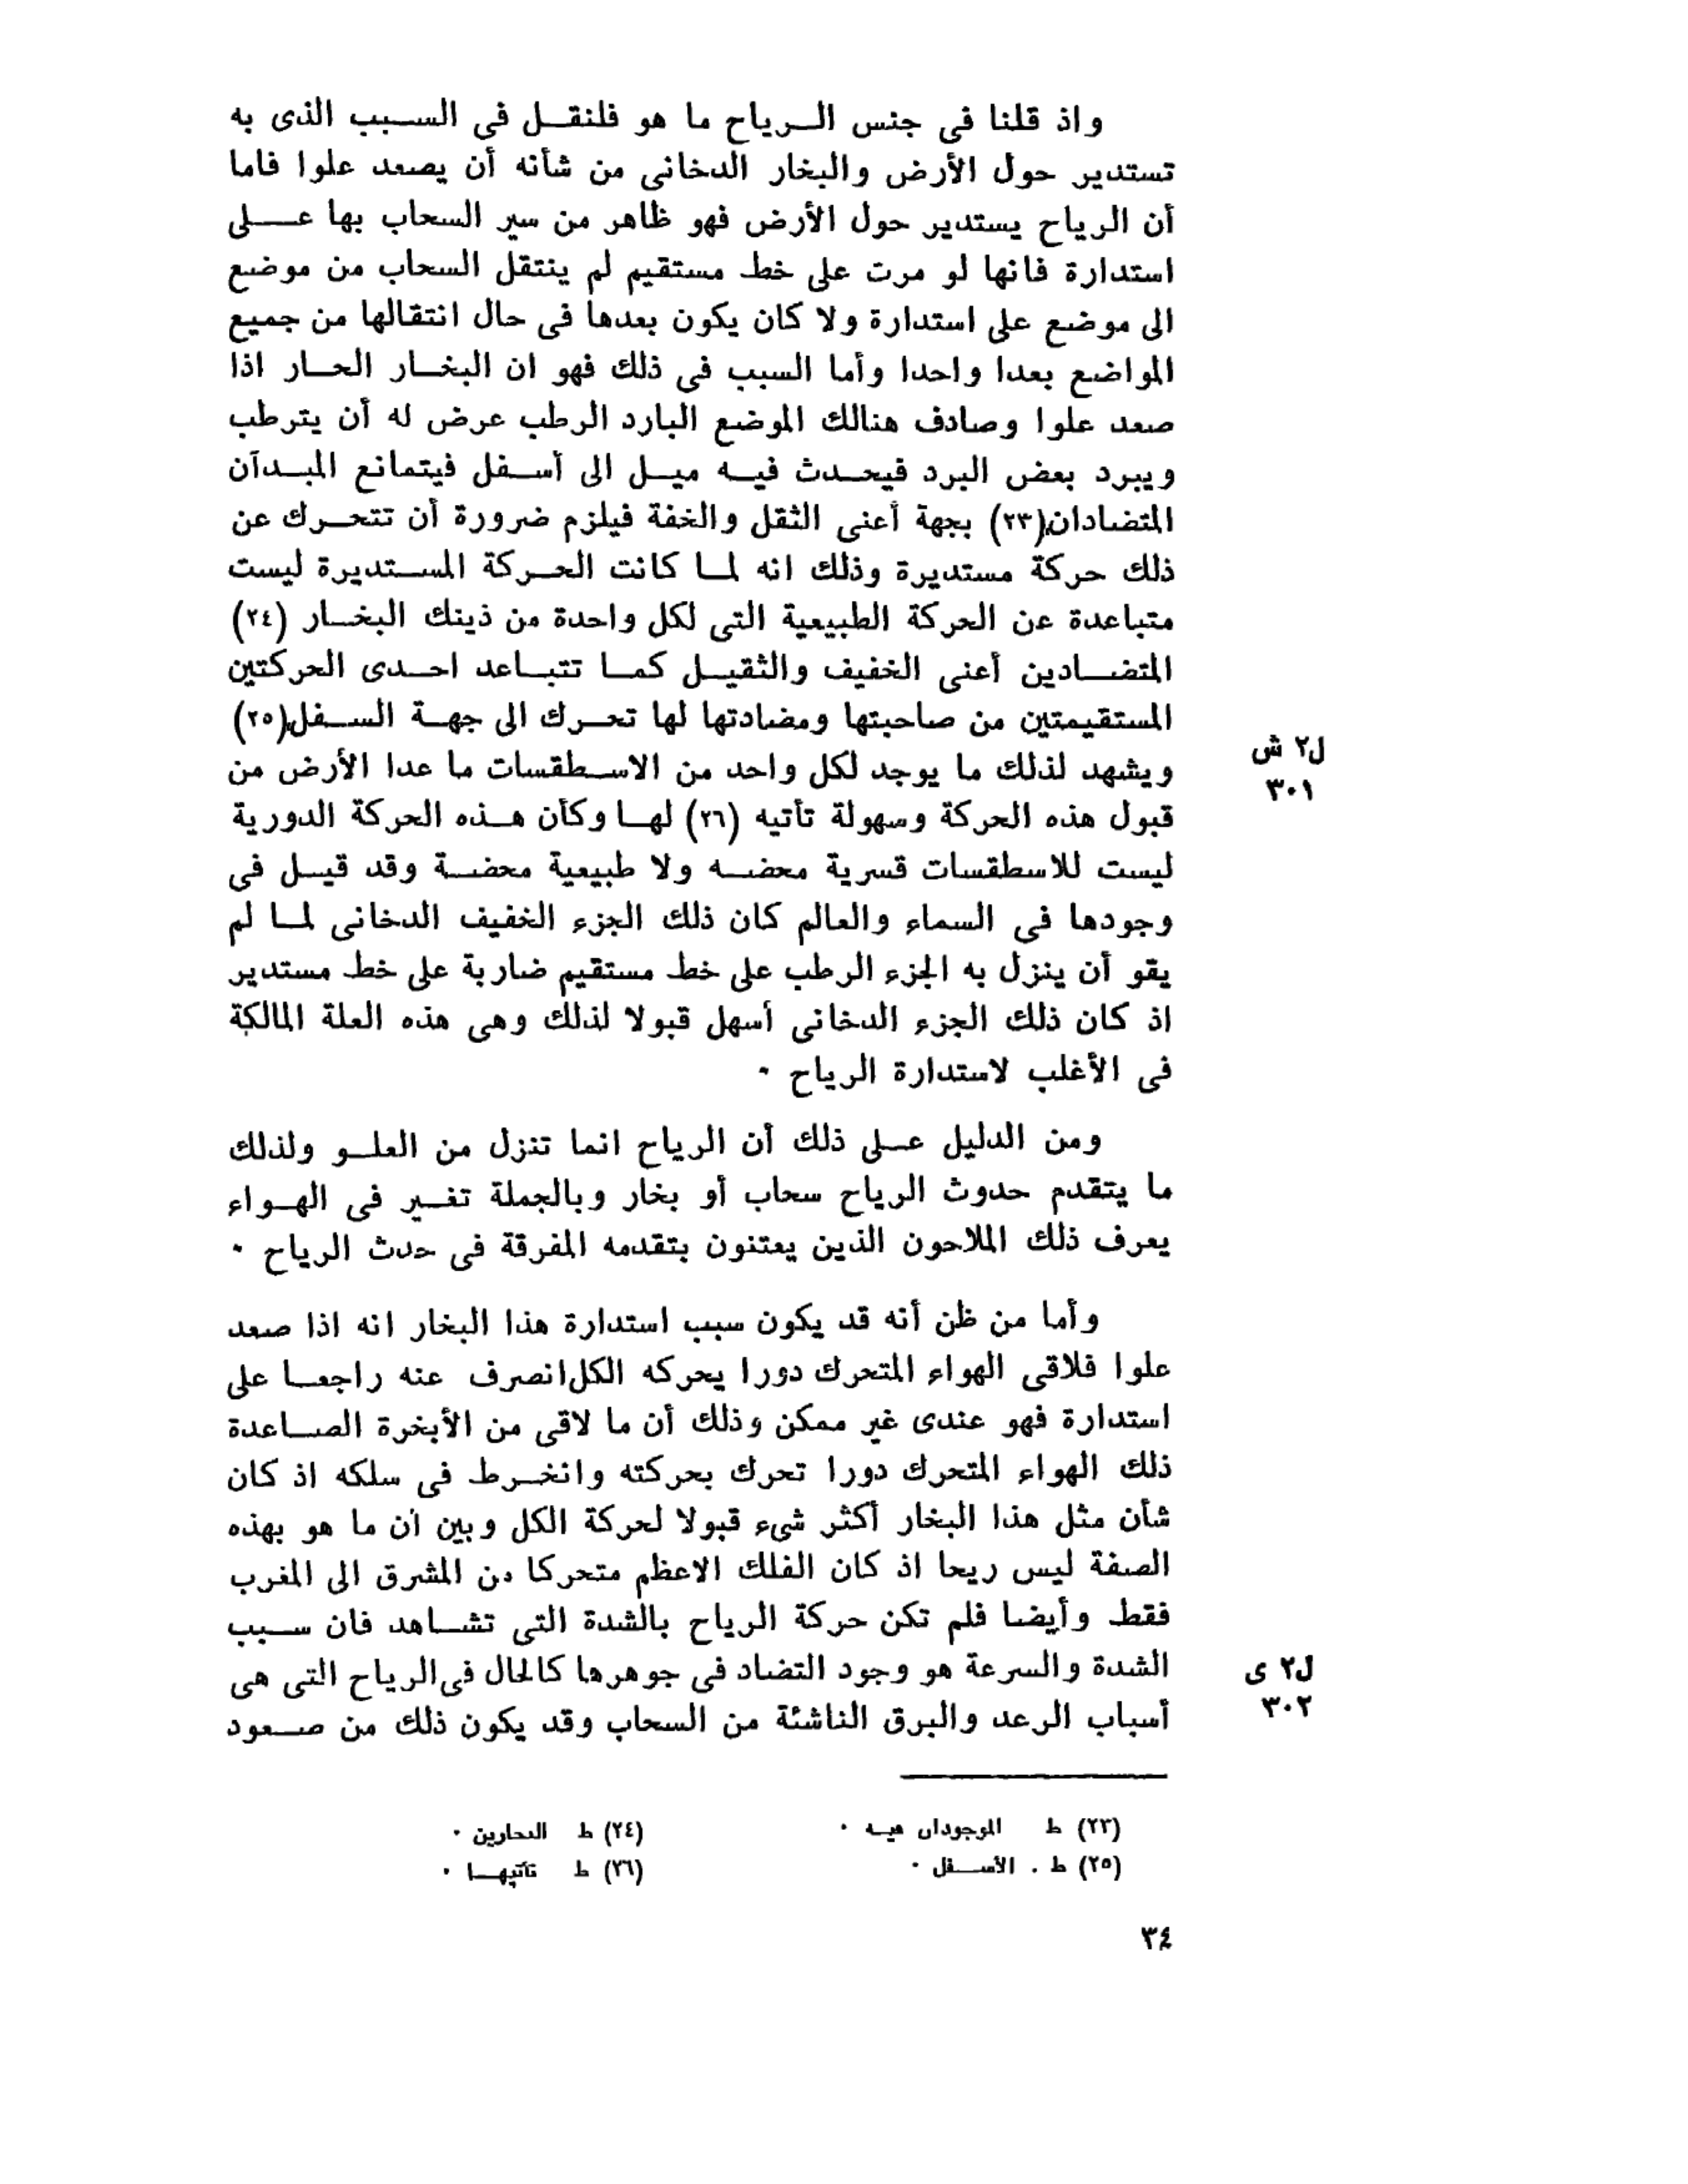 واذ قلنا فى جنس الرياح ما هو فلنقل فى السبب الذى به
تستدير حول الأرض والبخار الدخانى من شأنه أن يصعد علوا فاما
أن الرياح يستدير حول الأرض فهو ظاهر من سير السحاب بها على
استدارة فانها لو مرت على خط مستقيم لم ينتقل السحاب من موضع
الى موضع على استدارة ولا كان يكون بعدها فى حال انتقالها من جميع
المواضع بعدا واحدا وأما السبب فى ذلك فهو ان البخار الحار اذا
صعد علوا وصادف هنالك الموضع البارد الرطب عرض له أن يترطب
ويبرد بعض البرد فيحدث فيه ميل الى أسفل فيتمانع المبدآن
المتضادان(٢٣) بجهة أعنى الثقل والخفة فيلزم ضرورة أن تتحرك عن
ذلك حركة مستديرة وذلك انه لما كانت الحركة المستديرة ليست
متباعدة عن الحركة الطبيعية التى لكل واحدة من ذينك البخار (٢٤)
المتضادين أعنى الخفيف والثقيل كما تتباعد احدى الحركتين
المستقيمتين من صاحبتها ومضادتها لها تحرك الى جهة السفل(٢٥)
ل٢ ش
ويشهد لذلك ما يوجد لكل واحد من الاسطقسات ما عدا الأرض من
٣٠١
قبول هذه الحركة وسهولة تأتيه (٢٦) لها وكأن هذه الحركة الدورية
ليست للاسطقسات قسرية محضه ولا طبيعية محضة وقد قيل فى
وجودها فى السماء والعالم كان ذلك الجزء الخفيف الدخانى لما لم
يقو أن ينزل به الجزء الرطب على خط مستقيم ضاربة على خط مستدير
اذ كان ذلك الجزء الدخانى أسهل قبولا لذلك وهى هذه العلة المالكة
فى الأغلب لاستدارة الرياح ٠
ومن الدليل على ذلك أن الرياح انما تنزل من العلو ولذلك
ما يتقدم حدوث الرياح سحاب أو بخار وبالجملة تغير فى الهواء
يعرف ذلك الملاحون الذين يعتنون بتقدمه المفرقة فى حدث الرياح ٠
وأما من ظن أنه قد يكون سبب استدارة هذا البخار انه اذا صعد
علوا فلاقى الهواء المتحرك دورا يحركه الكل انصرف عنه راجعا على
استدارة فهو عندى غير ممكن وذلك أن ما لاقى من الأبخرة الصاعدة
ذلك الهواء المتحرك دورا تحرك بحركته وانخرط فى سلكه اذ كان
شأن مثل هذا البخار أكثر شىء قبولا لحركة الكل وبين أن ما هو بهذه
الصفة ليس ريحا اذ كان الفلك الاعظم متحركا من المشرق الى المغرب
فقط وأيضا فلم تكن حركة الرياح بالشدة التى تشاهد فان سبب
الشدة والسرعة هو وجود التضاد فى جوهرها كالحال فى الرياح التى هى
ل٢ ى
أسباب الرعد والبرق الناشئة من السحاب وقد يكون ذلك من صعود
٣٠٢
(٢٣) ط الموجودان فيه ٠
(٢٤) ط البخارين ٠
(٢٥) ط . الأسفل ٠
(٢٦) ط تأتيها ٠
٣٤